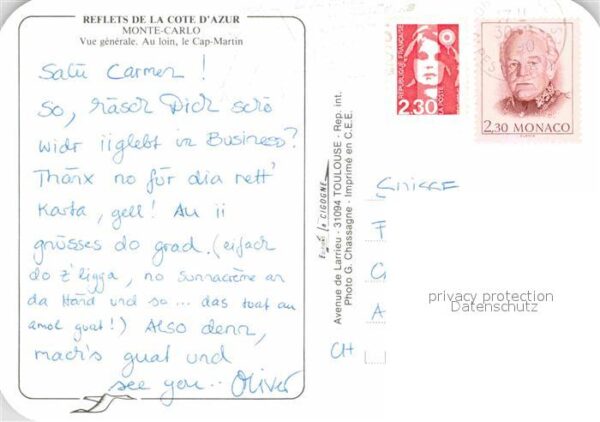 REFLETS DE LA COTE D'AZUR
MONTE-CARLO
Vue générale. Au loin, le Cap-Martin
Salü Carmen !
So, häsch Dich scho
widr iiglebt in Business?
Thänx no für dia nett'
Karta, gell! Au ii
gnüsses do grad. (eifach
do z'ligga, no Sunnacrème an
da Händ und so ... das tuat au
amol guat!) Also denn,
mach's guat und
see you .. Oliver
Editions la CIGOGNE
Avenue de Larrieu - 31094 TOULOUSE - Rep. int.
Photo G. Chassagne - Imprimé en C.E.E.
REPUBLIQUE FRANÇAISE
2,30
LA POSTE
2,30 MONACO
SUISSE
F
G
A
CH
privacy protection
Datenschutz